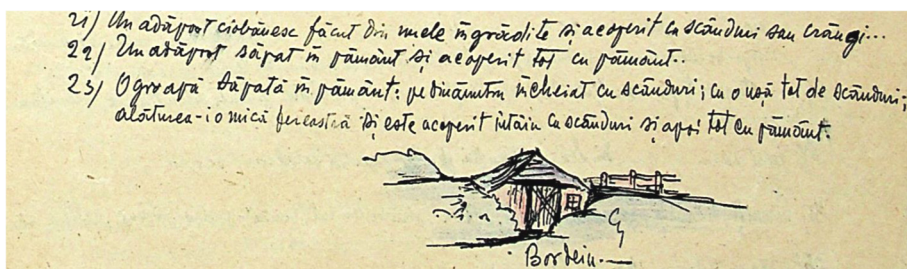 21) Un adăpost ciobănesc făcut din nuele îngrădite și acoperit cu scânduri sau crângi...
22) Un adăpost săpat în pământ și acoperit tot cu pământ..
23) O groapă săpată în pământ: pe dinăuntru încheiat cu scânduri; cu o ușă tot de scânduri;
alăturea-i o mică fereastră și este acoperit întâiu cu scânduri și apoi tot cu pământ.
Bordeiu.